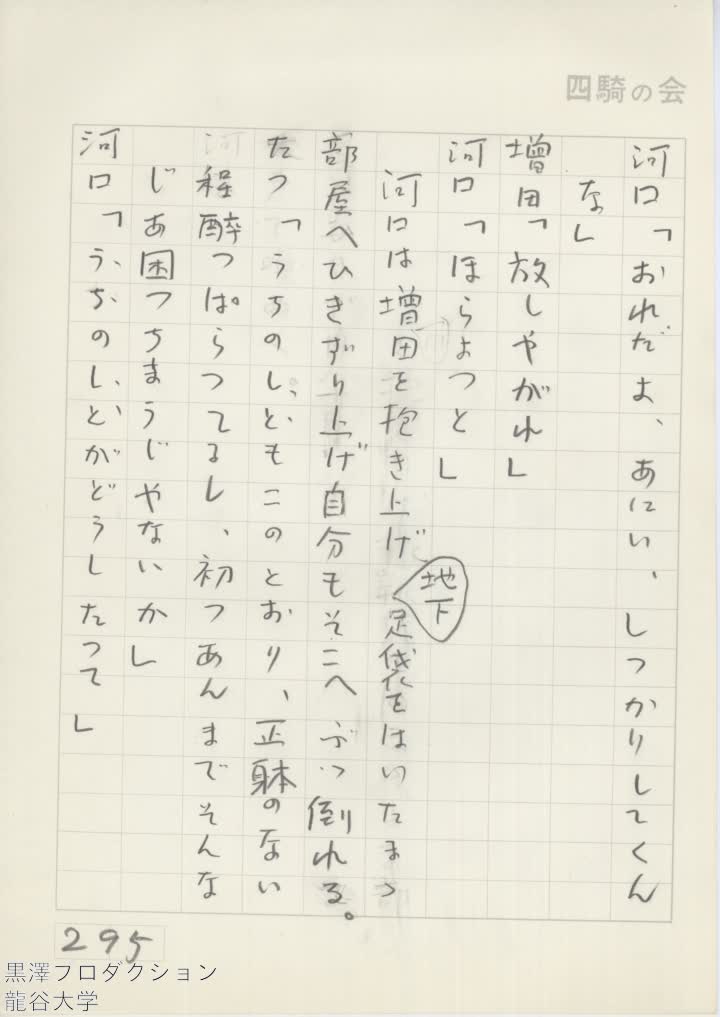 四騎の会
河口「おれだよ、あにい、しつかりしてくん
な」
増田「放しやがれ」
河口「ほらよつと」
河口は増田を抱き上げ地下足袋をはいたまつ
部屋へひきずり上げ自分もそこへぶつ倒れる。
たつ「うちのしどもこのとおり、正躰のない
程酔つぱらつてるし、初つあんまでそんな
じあ困つちまうじやないか」
河口「うちのしどがどうしたつて」
295
黒澤プロダクション
龍谷大学